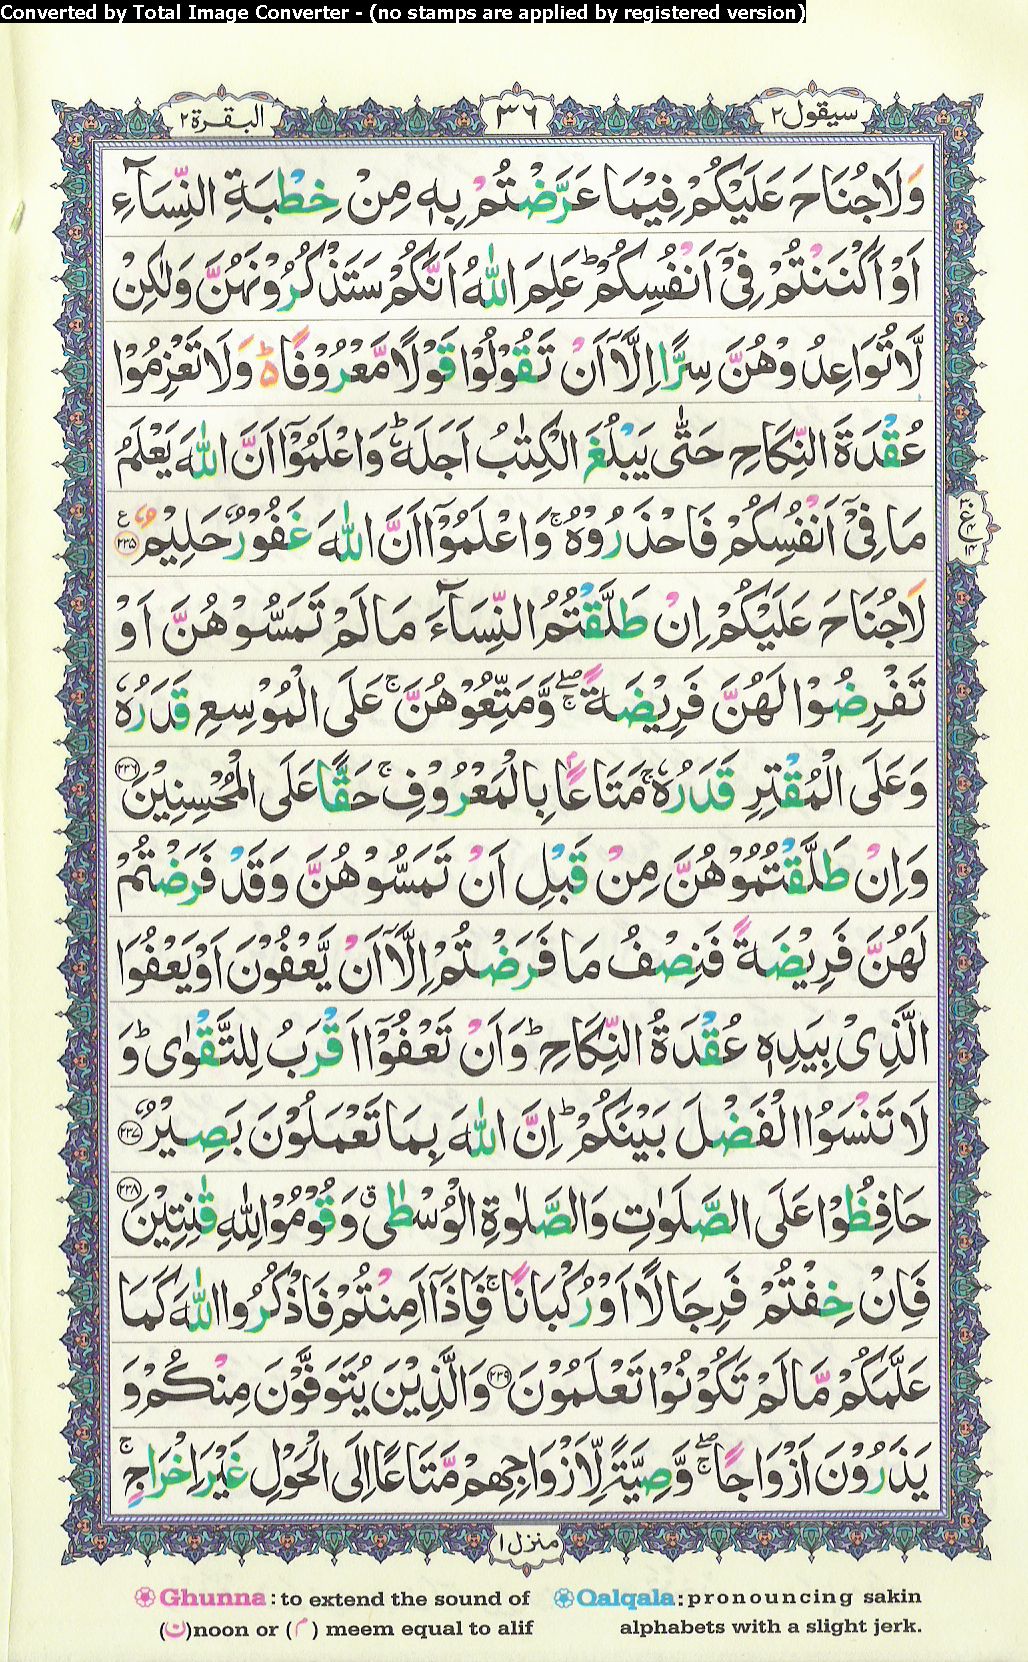 Converted by Total Image Converter - (no stamps are applied by registered version)
سيقول ٢
٣٦
البقرة ٢
وَلَا جُنَاحَ عَلَيْكُمْ فِيْمَا عَرَّضْتُمْ بِهٖ مِنْ خِطْبَةِ النِّسَآءِ
اَوْ اَكْنَنْتُمْ فِيْٓ اَنْفُسِكُمْ ؕ عَلِمَ اللّٰهُ اَنَّكُمْ سَتَذْكُرُوْنَهُنَّ وَلٰكِنْ
لَّا تُوَاعِدُوْهُنَّ سِرًّا اِلَّآ اَنْ تَقُوْلُوْا قَوْلًا مَّعْرُوْفًا ؕ۬ وَلَا تَعْزِمُوْا
عُقْدَةَ النِّكَاحِ حَتّٰى يَبْلُغَ الْكِتٰبُ اَجَلَهٗ ؕ وَاعْلَمُوْٓا اَنَّ اللّٰهَ يَعْلَمُ
مَا فِيْٓ اَنْفُسِكُمْ فَاحْذَرُوْهُ ۚ وَاعْلَمُوْٓا اَنَّ اللّٰهَ غَفُوْرٌ حَلِيْمٌ ٢٣٥ ع
لَا جُنَاحَ عَلَيْكُمْ اِنْ طَلَّقْتُمُ النِّسَآءَ مَا لَمْ تَمَسُّوْهُنَّ اَوْ
تَفْرِضُوْا لَهُنَّ فَرِيْضَةً ۖۚ وَّمَتِّعُوْهُنَّ ۚ عَلَى الْمُوْسِعِ قَدَرُهٗ
وَعَلَى الْمُقْتِرِ قَدَرُهٗ ۚ مَتَاعًۢا بِالْمَعْرُوْفِ ۚ حَقًّا عَلَى الْمُحْسِنِيْنَ ٢٣٦
وَاِنْ طَلَّقْتُمُوْهُنَّ مِنْ قَبْلِ اَنْ تَمَسُّوْهُنَّ وَقَدْ فَرَضْتُمْ
لَهُنَّ فَرِيْضَةً فَنِصْفُ مَا فَرَضْتُمْ اِلَّآ اَنْ يَّعْفُوْنَ اَوْ يَعْفُوَا
الَّذِيْ بِيَدِهٖ عُقْدَةُ النِّكَاحِ ؕ وَاَنْ تَعْفُوْٓا اَقْرَبُ لِلتَّقْوٰى ؕ وَ
لَا تَنْسَوُا الْفَضْلَ بَيْنَكُمْ ؕ اِنَّ اللّٰهَ بِمَا تَعْمَلُوْنَ بَصِيْرٌ ٢٣٧
حَافِظُوْا عَلَى الصَّلَوٰتِ وَالصَّلٰوةِ الْوُسْطٰى ۗ وَقُوْمُوْا لِلّٰهِ قٰنِتِيْنَ ٢٣٨
فَاِنْ خِفْتُمْ فَرِجَالًا اَوْ رُكْبَانًا ۚ فَاِذَآ اَمِنْتُمْ فَاذْكُرُوا اللّٰهَ كَمَا
عَلَّمَكُمْ مَّا لَمْ تَكُوْنُوْا تَعْلَمُوْنَ ٢٣٩ وَالَّذِيْنَ يُتَوَفَّوْنَ مِنْكُمْ وَ
يَذَرُوْنَ اَزْوَاجًا ۖۚ وَّصِيَّةً لِّاَزْوَاجِهِمْ مَّتَاعًا اِلَى الْحَوْلِ غَيْرَ اِخْرَاجٍ ۚ
منزل ١
Ghunna : to extend the sound of
(ن)noon or (م) meem equal to alif
Qalqala : pronouncing sakin
alphabets with a slight jerk.